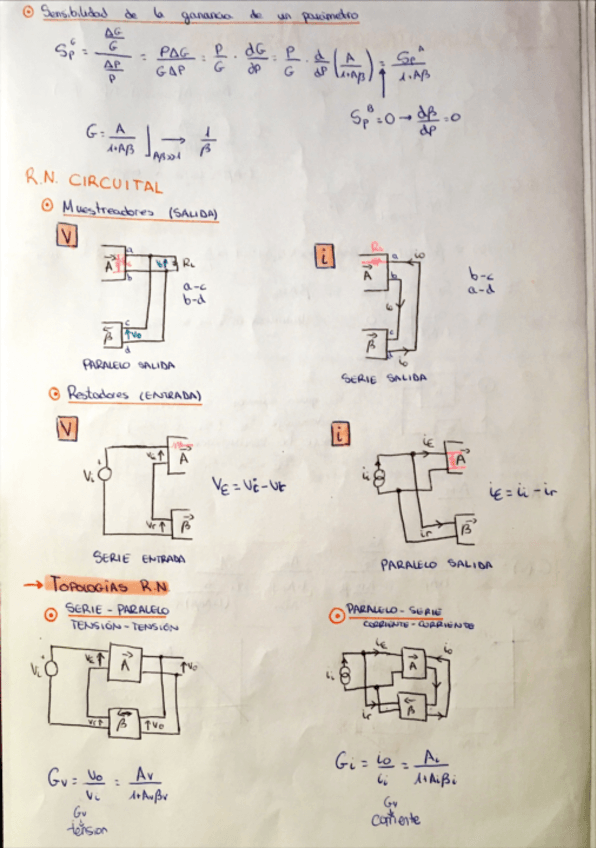 Sensibilidad de la ganancia de un parámetro
S_P^G = (ΔG/G)/(ΔP/P) = PΔG/GΔP = P/G · dG/dP = P/G · d/dP (A/1+Aβ) = S_P^A/1+Aβ
S_P^B = 0 → dβ/dP = 0
G = A/1+Aβ ]Aβ>>1 → 1/β
R.N. CIRCUITAL
Muestreadores (SALIDA)
V
a
A
b
RL
a-c
b-d
c
β
Vo
d
PARALELO SALIDA
i
RL
a
io
A
b
b-c
a-d
io
c
β
d
io
SERIE SALIDA
Restadores (ENTRADA)
V
Vi
Vε
A
Vr
β
SERIE ENTRADA
Vε = Vi - Vr
i
ii
iε
A
ir
β
PARALELO SALIDA
iε = ii - ir
→ TOPOLOGÍAS R.N
SERIE - PARALELO
TENSIÓN - TENSIÓN
Vi
Vε
A
Vo
Vr
β
Vo
Gv = Vo/Vi = Av/1+Avβv
Gv
tensión
PARALELO - SERIE
CORRIENTE - CORRIENTE
ii
iε
A
io
ir
β
Gi = io/ii = Ai/1+Aiβi
Gv
corriente